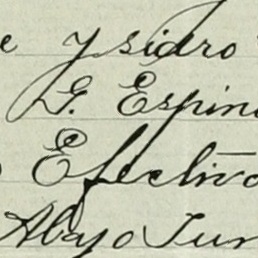 e Ysidro
G. Espin
o Efectivo
Abajo Jun